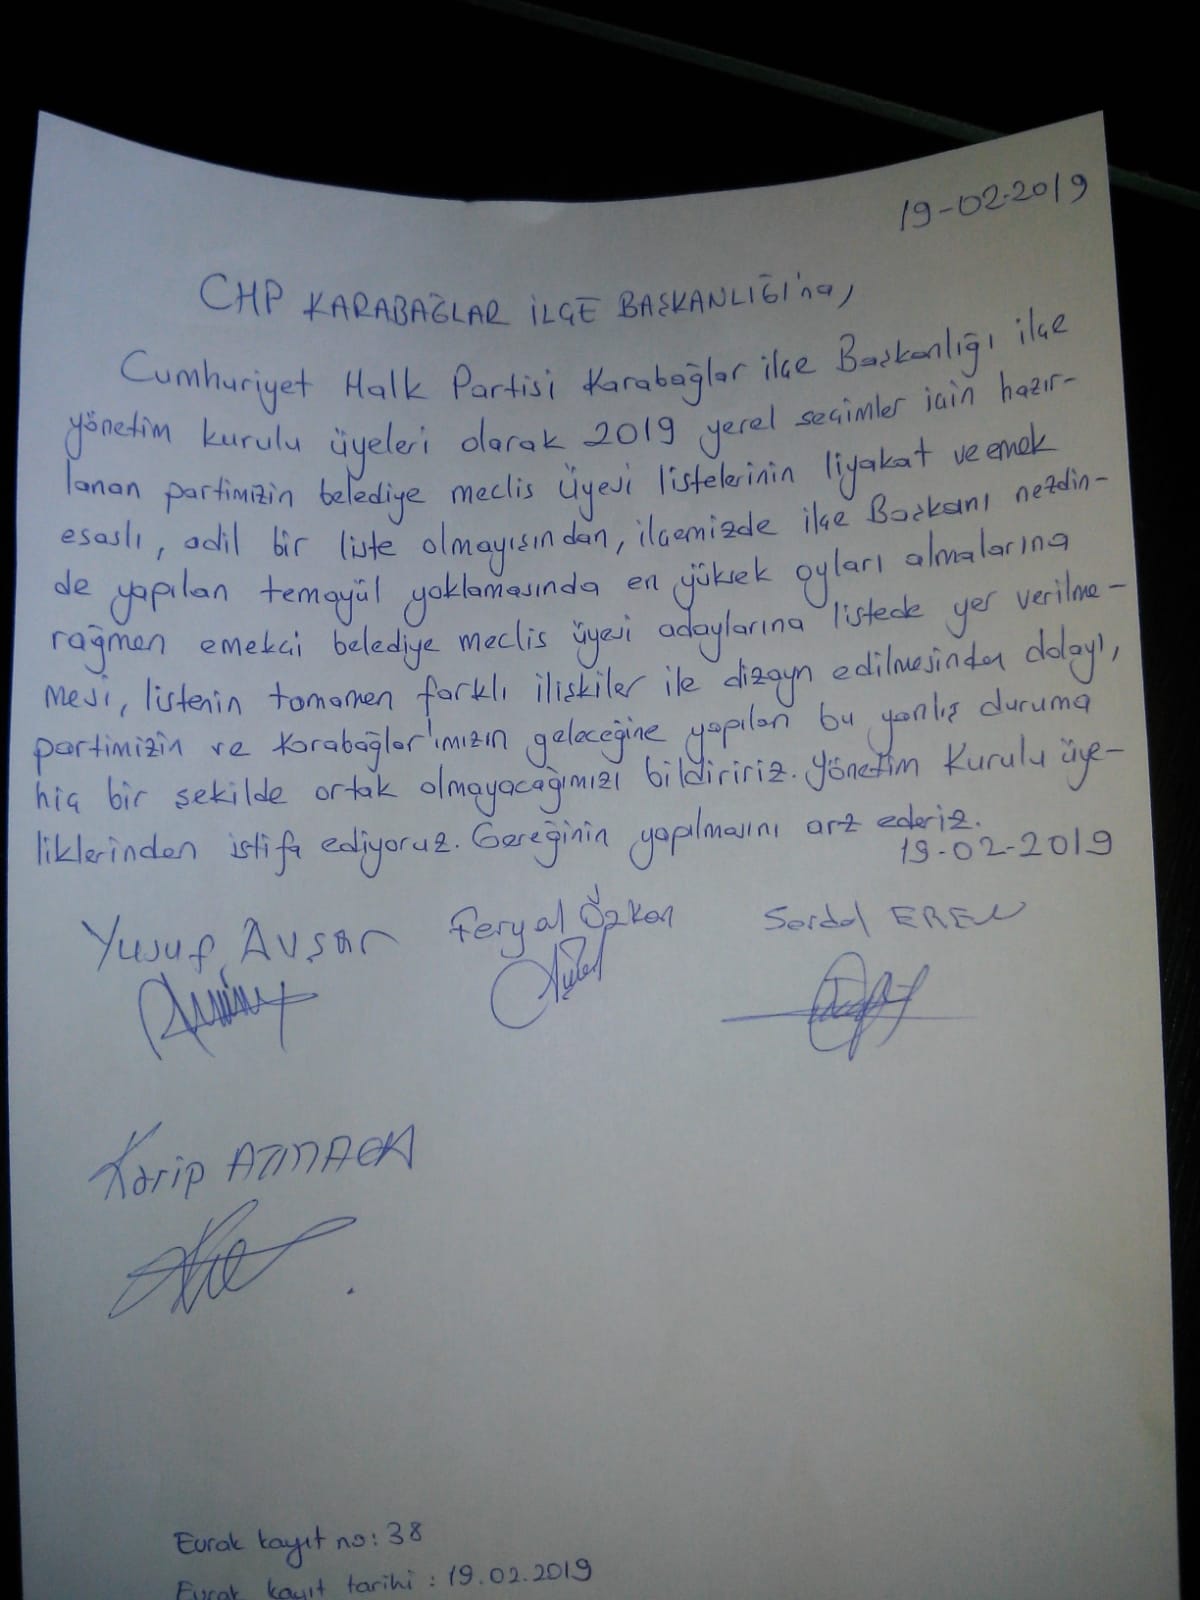 19-02-2019
CHP KARABAĞLAR İLÇE BAŞKANLIĞI'na,
Cumhuriyet Halk Partisi Karabağlar ilçe Başkanlığı ilçe
yönetim kurulu üyeleri olarak 2019 yerel seçimler için hazır-
lanan partimizin belediye meclis üyesi listelerinin liyakat ve emek
esaslı, adil bir liste olmayışından, ilçemizde ilçe Başkanı nezdin-
de yapılan temayül yoklamasında en yüksek oyları almalarına
rağmen emekçi belediye meclis üyesi adaylarına listede yer verilme-
mesi, listenin tamamen farklı ilişkiler ile dizayn edilmesinden dolayı,
partimizin ve Karabağlar'ımızın geleceğine yapılan bu yanlış duruma
hiç bir şekilde ortak olmayacağımızı bildiririz. Yönetim Kurulu üye-
liklerinden istifa ediyoruz. Gereğinin yapılmasını arz ederiz.
19-02-2019
Yusuf AVŞAR Feryal Özkan Serdal EREN
Karip ATMACA
Evrak kayıt no: 38
Evrak kayıt tarihi : 19.02.2019